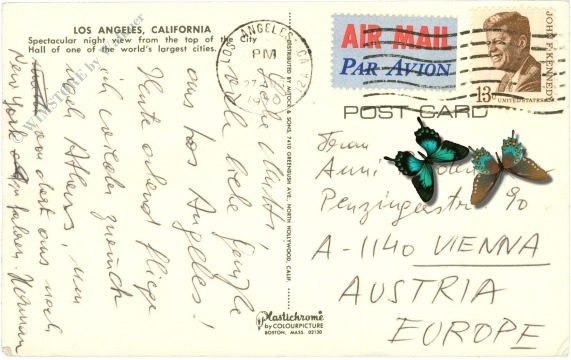 LOS ANGELES, CALIFORNIA
Spectacular night view from the top of the City
Hall of one of the world's largest cities.
Liebe
viele liebe Grüße
aus Los Angeles!
Heute abend fliege
ich wieder zurück
nach Athens, um
von dort aus nach
New York zu fahren. Herman
DISTRIBUTED BY MITOCK & SONS, 7410 GREENBUSH AVE., NORTH HOLLYWOOD, CALIF.
Plastichrome
by COLOURPICTURE
BOSTON, MASS. 02130
LOS ANGELES, CA
PM
AIR MAIL
PAR AVION
JOHN F. KENNEDY
13c
UNITED STATES
POST CARD
Frau
Anni
Penzingerstr. 90
A-1140 VIENNA
AUSTRIA
EUROPE